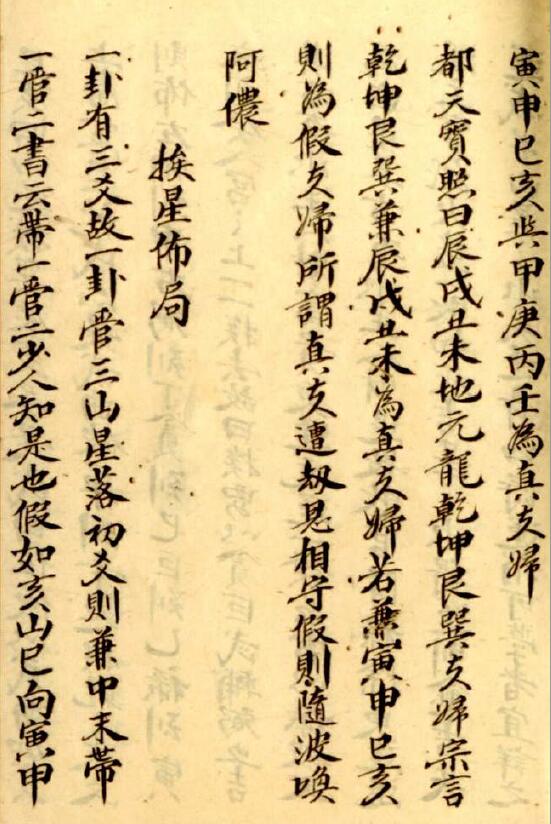 寅申巳亥與甲庚丙壬為真夫婦
都天寶照曰辰戌丑未地元龍乾坤艮巽夫婦宗言
乾坤艮巽兼辰戌丑未為真夫婦若兼寅申巳亥
則為假夫婦所謂真夫遭劫恳相守假則隨波喚
阿儂
挨星佈局
一卦有三爻故一卦管三山星落初爻則兼中末帶
一管二書云帶一管二少人知是也假如亥山巳向寅申